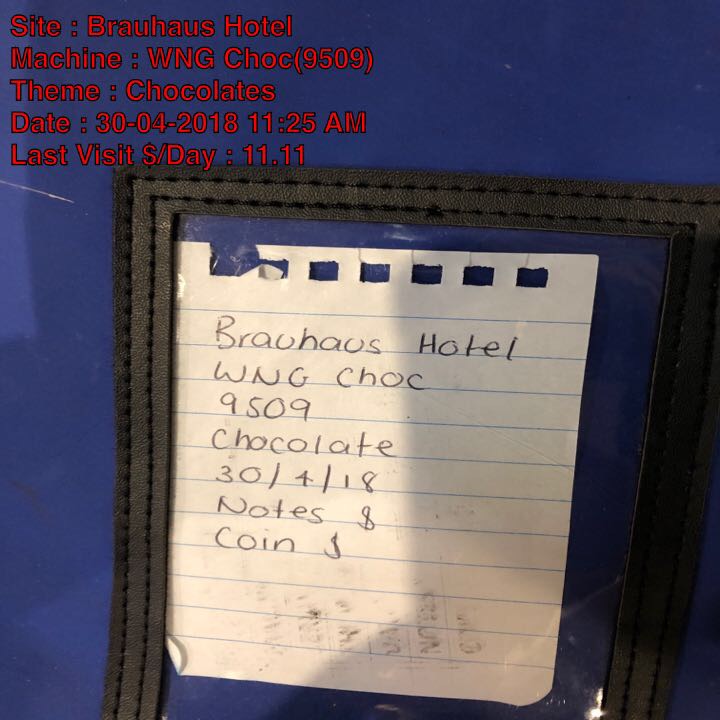 Site : Brauhaus Hotel
Machine : WNG Choc(9509)
Theme : Chocolates
Date : 30-04-2018 11:25 AM
Last Visit $/Day : 11.11
Brauhaus Hotel
WNG Choc
9509
Chocolate
30/4/18
Notes $
Coin $